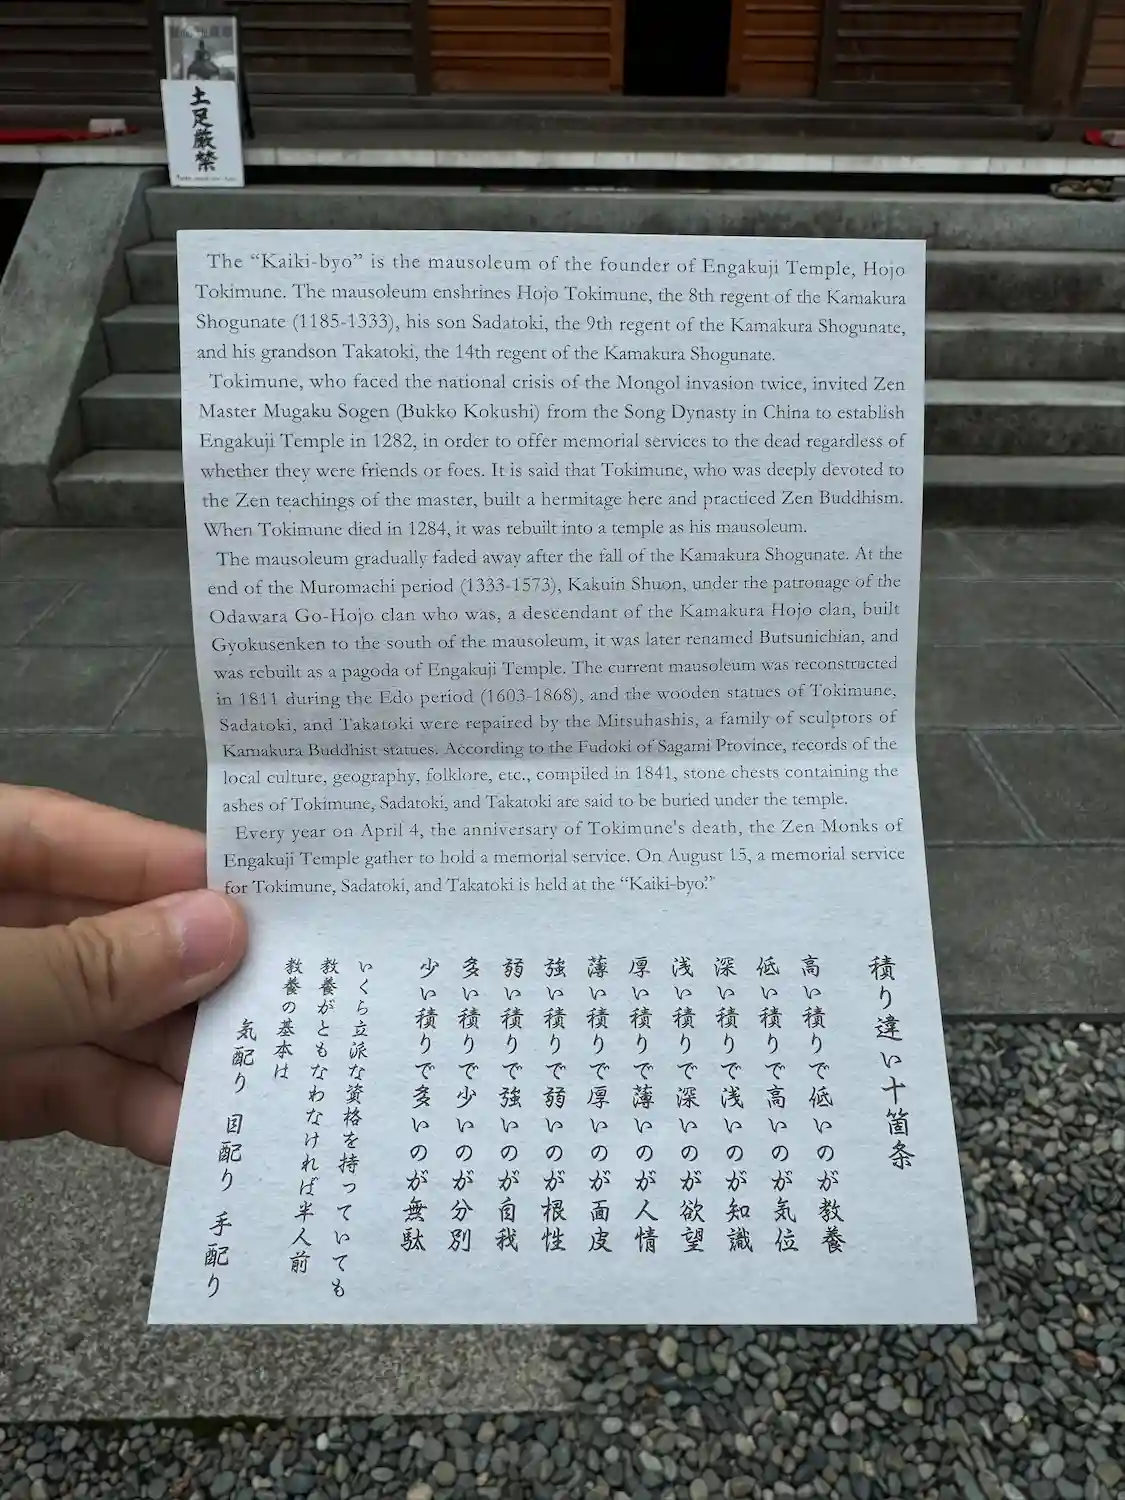 土足厳禁
The “Kaiki-byo” is the mausoleum of the founder of Engakuji Temple, Hojo
Tokimune. The mausoleum enshrines Hojo Tokimune, the 8th regent of the Kamakura
Shogunate (1185-1333), his son Sadatoki, the 9th regent of the Kamakura Shogunate,
and his grandson Takatoki, the 14th regent of the Kamakura Shogunate.
Tokimune, who faced the national crisis of the Mongol invasion twice, invited Zen
Master Mugaku Sogen (Bukko Kokushi) from the Song Dynasty in China to establish
Engakuji Temple in 1282, in order to offer memorial services to the dead regardless of
whether they were friends or foes. It is said that Tokimune, who was deeply devoted to
the Zen teachings of the master, built a hermitage here and practiced Zen Buddhism.
When Tokimune died in 1284, it was rebuilt into a temple as his mausoleum.
The mausoleum gradually faded away after the fall of the Kamakura Shogunate. At the
end of the Muromachi period (1333-1573), Kakuin Shuon, under the patronage of the
Odawara Go-Hojo clan who was, a descendant of the Kamakura Hojo clan, built
Gyokusenken to the south of the mausoleum, it was later renamed Butsunichian, and
was rebuilt as a pagoda of Engakuji Temple. The current mausoleum was reconstructed
in 1811 during the Edo period (1603-1868), and the wooden statues of Tokimune,
Sadatoki, and Takatoki were repaired by the Mitsuhashis, a family of sculptors of
Kamakura Buddhist statues. According to the Fudoki of Sagami Province, records of the
local culture, geography, folklore, etc., compiled in 1841, stone chests containing the
ashes of Tokimune, Sadatoki, and Takatoki are said to be buried under the temple.
Every year on April 4, the anniversary of Tokimune's death, the Zen Monks of
Engakuji Temple gather to hold a memorial service. On August 15, a memorial service
for Tokimune, Sadatoki, and Takatoki is held at the “Kaiki-byo.”
積り違い十箇条
高い積りで低いのが教養
低い積りで高いのが気位
深い積りで浅いのが知識
浅い積りで深いのが欲望
厚い積りで薄いのが人情
薄い積りで厚いのが面皮
強い積りで弱いのが根性
弱い積りで強いのが自我
多い積りで少いのが分別
少い積りで多いのが無駄
いくら立派な資格を持っていても
教養がともなわなければ半人前
教養の基本は
気配り 目配り 手配り